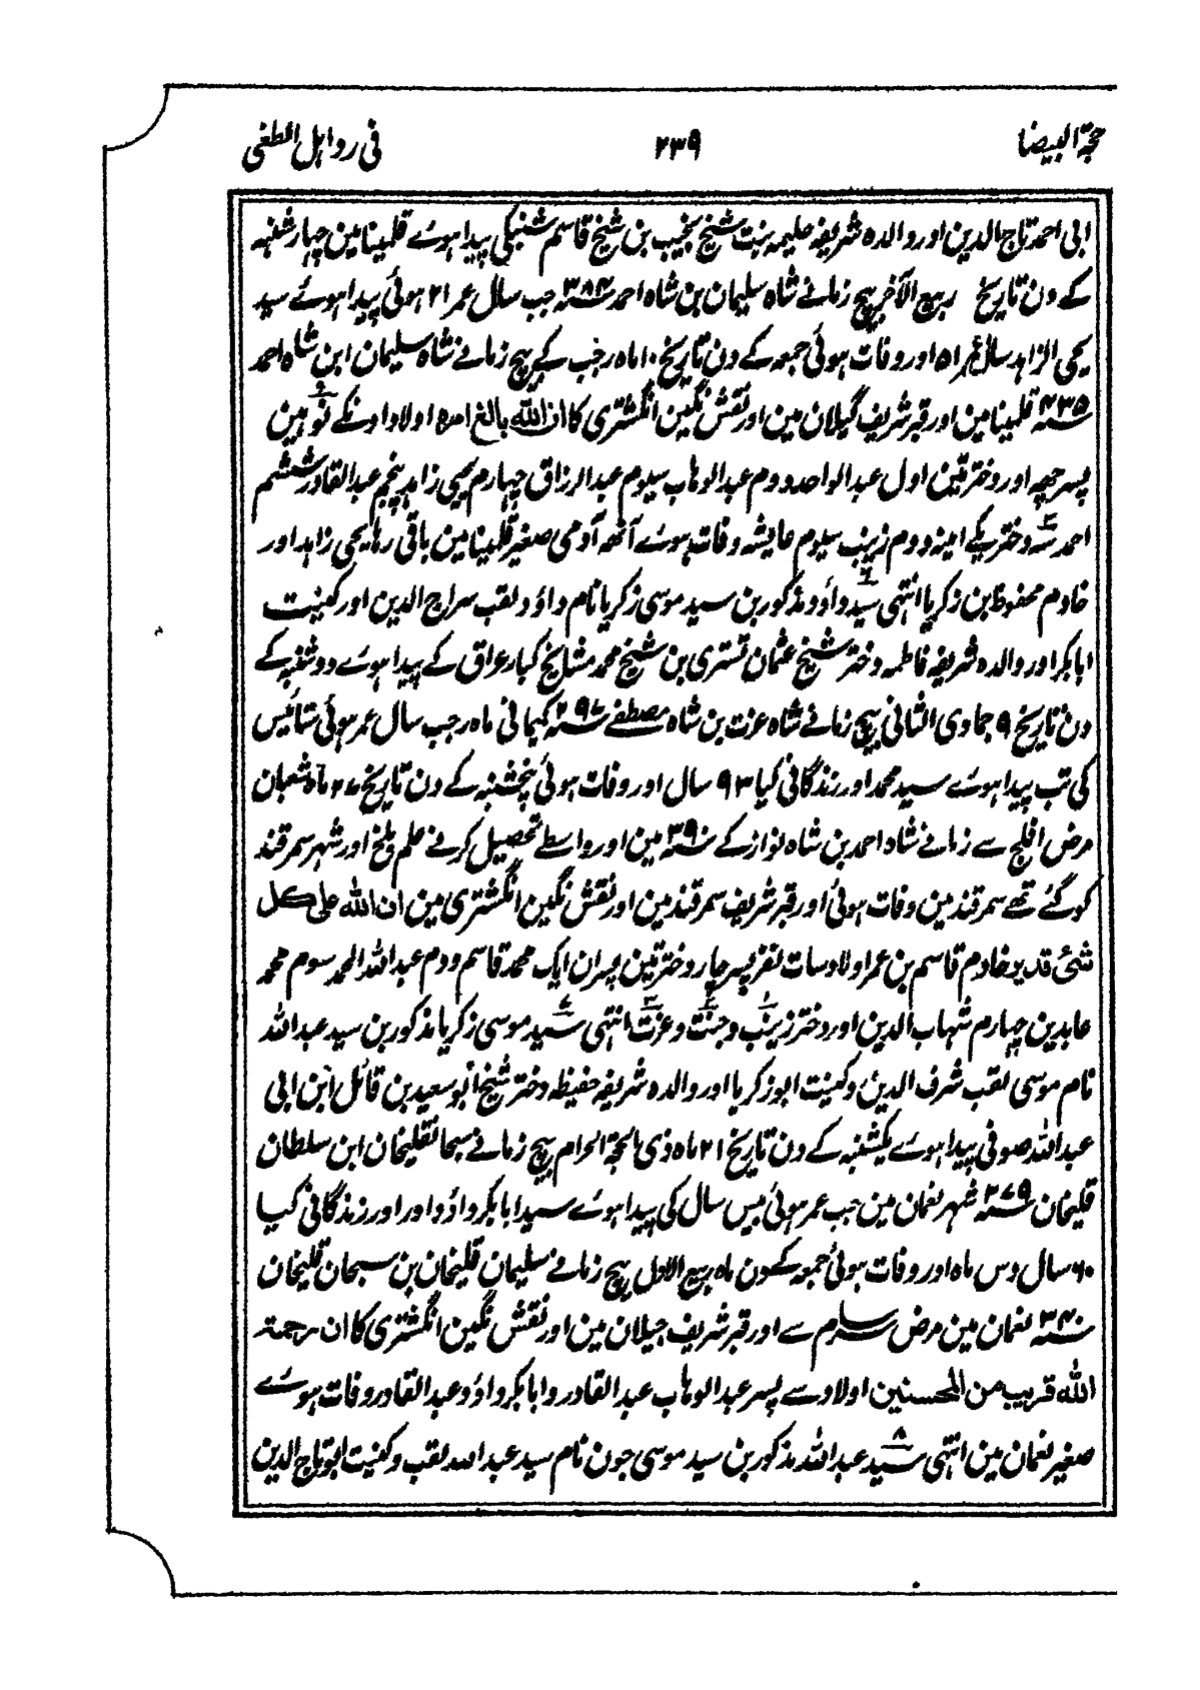 حجۃ البیضا ۲۳۹ فی رد اہل الطغی
ابی احمد تاج الدین اور والدہ شریفہ حلیمہ بنت شیخ نجیب بن شیخ قاسم شنبکی پیدا ہوے قلمینا مین چہارشنبہ
کے دن تاریخ ربیع الآخر بیچ زمانے شاہ سلیمان بن شاہ احمد ۳۸۴؁ جب سال عمر ۲۱ ہوئی پیدا ہوئے سید
یحی الزاہد سال عمر ۵۱ اور وفات ہوئی جمعہ کے دن تاریخ ۱۰ ماہ رجب کے بیچ زمانے شاہ سلیمان ابن شاہ احمد
۴۳۵؁ قلمینا مین اور قبر شریف گیلان مین اور نقش نگین انگشتری کا ان اللہ بالغ امرہ اولاد اونکے نو ہین
پسر چھ اور دختر تین اول عبد الواحد دوم عبد الوہاب سیوم عبد الرزاق چہارم یحیی زاہد پنجم عبد القادر ششم
احمد دختر یکے امینہ دوم زینب سیوم عایشہ وفات ہوے آٹھ آدمی صغیر قلمینا مین باقی رہا یحی زاہد اور
خادم محفوظ بن زکریا انتہی سید داؤد مذکور بن سید موسی زکریا نام داؤد لقب سراج الدین اور کنیت
ابابکر اور والدہ شریفہ فاطمہ دختر شیخ عثمان تستری بن شیخ محمد مشایخ کبار عراق کے پیدا ہوے دوشنبہ کے
دن تاریخ ۹ جمادی الثانی بیچ زمانے شاہ عزت بن شاہ مصطفے ۲۹۷؁ کہانی ماہ رجب سال عمر ہوئی ستائیس
کی تب پیدا ہوے سید محمد اور زندگانی کیا ۹۳ سال اور وفات ہوئی پنچشنبہ کے دن تاریخ ۲۷ ماہ شعبان
مرض افلج سے زمانے شاہ احمد بن شاہ نواز کے ۳۹۰؁ مین اور واسطے تحصیل کرنے علم بلخ اور شہر سمرقند
کو گئے تھے سمرقند مین وفات ہوئی اور قبر شریف سمرقند مین اور نقش نگین انگشتری مین ان اللہ علی کل
شئ قدیر خادم قاسم بن عمر اولاد سات نفر پسر چار دختر تین پسران ایک محمد قاسم ودم عبد اللہ المحمد سوم محمد
عابدین چہارم شہاب الدین اور دختر زینب وجنت وعزت انتہی سید موسی زکریا مذکور بن سید عبد اللہ
نام موسی لقب شرف الدین وکنیت ابوزکریا اور والدہ شریفہ حفیظہ دختر شیخ ابو سعید بن قائل ابن ابی
عبد اللہ صوفی پیدا ہوے یکشنبہ کے دن تاریخ ۲۱ ماہ ذی الحجۃ الحرام بیچ زمانے سبحانقلیخان ابن سلطان
قلیخان ۲۷۹؁ شہر نعمان مین جب عمر ہوئی بیس سال کی پیدا ہوے سید ابابکر داؤد اور اور زندگانی کیا
۶۰ سال دس ماہ اور وفات ہوئی جمعہ کے دن ماہ ربیع الاول بیچ زمانے سلیمان قلیخان بن سبحان قلیخان
۳۴۰؁ نعمان مین مرض سرسام سے اور قبر شریف جیلان مین اور نقش نگین انگشتری کا ان رحمۃ
اللہ قریب من المحسنین اولاد سے پسر عبد الوہاب عبد القادر وابابکر داؤد وعبد القادر وفات ہوے
صغیر نعمان مین انتہی سید عبد اللہ مذکور بن سید موسی جون نام سید عبد اللہ لقب وکنیت ابو تاج الدین